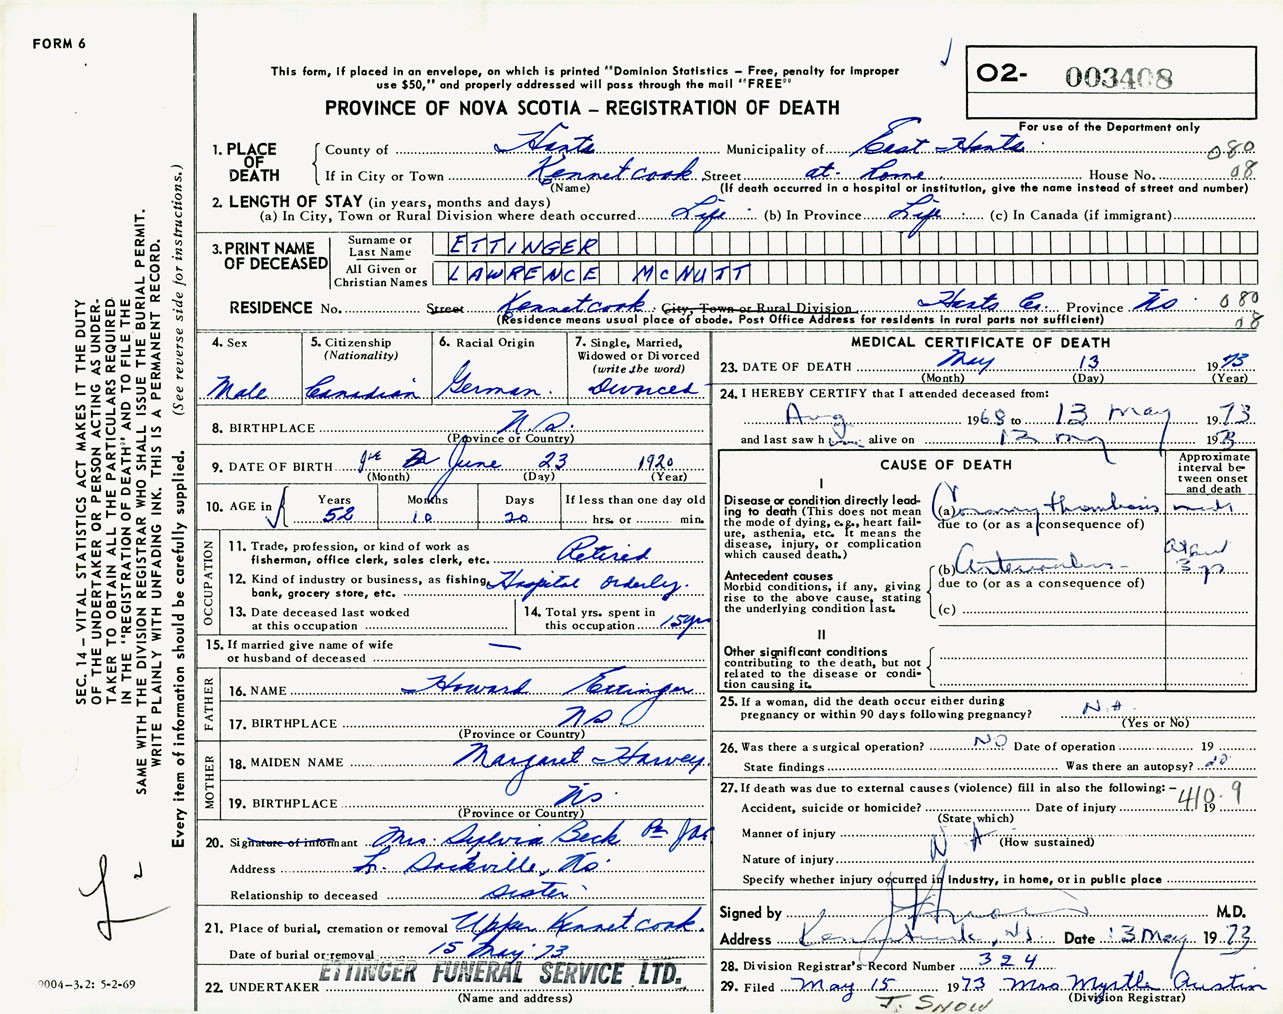 FORM 6
This form, if placed in an envelope, on which is printed "Dominion Statistics – Free, penalty for improper
use $50," and properly addressed will pass through the mail "FREE"
PROVINCE OF NOVA SCOTIA – REGISTRATION OF DEATH
O2- 003408
For use of the Department only
1. PLACE OF DEATH
County of Hants Municipality of East Hants 080
If in City or Town Kennetcook Street at home House No. 08
(Name) (If death occurred in a hospital or institution, give the name instead of street and number)
2. LENGTH OF STAY (in years, months and days)
(a) In City, Town or Rural Division where death occurred Life (b) In Province Life (c) In Canada (if immigrant)
3. PRINT NAME OF DECEASED
Surname or Last Name ETTINGER
All Given or Christian Names LAWRENCE MCNUTT
RESIDENCE No. Street Kennetcook City, Town or Rural Division Hants Co. Province NS 080
(Residence means usual place of abode. Post Office Address for residents in rural parts not sufficient) 08
4. Sex
Male
5. Citizenship
(Nationality)
Canadian
6. Racial Origin
German.
7. Single, Married,
Widowed or Divorced
(write the word)
Divorced
8. BIRTHPLACE N.S.
(Province or Country)
9. DATE OF BIRTH June 23 1920
(Month) (Day) (Year)
10. AGE in
Years Months Days If less than one day old
52 10 20 hrs. or min.
OCCUPATION
11. Trade, profession, or kind of work as
fisherman, office clerk, sales clerk, etc. Retired
12. Kind of industry or business, as fishing,
bank, grocery store, etc. Hospital orderly.
13. Date deceased last worked
at this occupation
14. Total yrs. spent in
this occupation 15 yrs
15. If married give name of wife
or husband of deceased —
FATHER
16. NAME Howard Ettinger
17. BIRTHPLACE NS
(Province or Country)
MOTHER
18. MAIDEN NAME Margaret Harvey.
19. BIRTHPLACE NS
(Province or Country)
20. Signature of informant Mrs. Sylvia Beck
Address L. Sackville, NS
Relationship to deceased sister
21. Place of burial, cremation or removal Upper Kennetcook.
Date of burial or removal 15 May 73
22. UNDERTAKER ETTINGER FUNERAL SERVICE LTD.
(Name and address)
MEDICAL CERTIFICATE OF DEATH
23. DATE OF DEATH May 13 1973
(Month) (Day) (Year)
24. I HEREBY CERTIFY that I attended deceased from:
Aug 1968 to 13 May 1973
and last saw him alive on 12 May 1973
CAUSE OF DEATH
Approximate
interval be-
tween onset
and death
I
Disease or condition directly lead-
ing to death (This does not mean
the mode of dying, e.g., heart fail-
ure, asthenia, etc. It means the
disease, injury, or complication
which caused death.)
(a) Coronary thrombosis
due to (or as a consequence of)
Antecedent causes
Morbid conditions, if any, giving
rise to the above cause, stating
the underlying condition last.
(b) at least 3 yrs
due to (or as a consequence of)
(c)
II
Other significant conditions
contributing to the death, but not
related to the disease or condi-
tion causing it.
25. If a woman, did the death occur either during
pregnancy or within 90 days following pregnancy? N.A.
(Yes or No)
26. Was there a surgical operation? NO Date of operation 19
State findings Was there an autopsy? no
27. If death was due to external causes (violence) fill in also the following: – 410.9
Accident, suicide or homicide? Date of injury 19
(State which)
Manner of injury
(How sustained)
N A
Nature of injury
Specify whether injury occurred in industry, in home, or in public place
Signed by M.D.
Address Kennetcook, N.S. Date 13 May 1973
28. Division Registrar's Record Number 324
29. Filed May 15 1973 Mrs Myrtle Austin
(Division Registrar)
J. SNOW
SEC. 14 – VITAL STATISTICS ACT MAKES IT THE DUTY
OF THE UNDERTAKER OR PERSON ACTING AS UNDER-
TAKER TO OBTAIN ALL THE PARTICULARS REQUIRED
IN THE "REGISTRATION OF DEATH" AND TO FILE THE
SAME WITH THE DIVISION REGISTRAR WHO SHALL ISSUE THE BURIAL PERMIT.
WRITE PLAINLY WITH UNFADING INK. THIS IS A PERMANENT RECORD.
Every item of information should be carefully supplied. (See reverse side for instructions.)
9004-3.2: 5-2-69